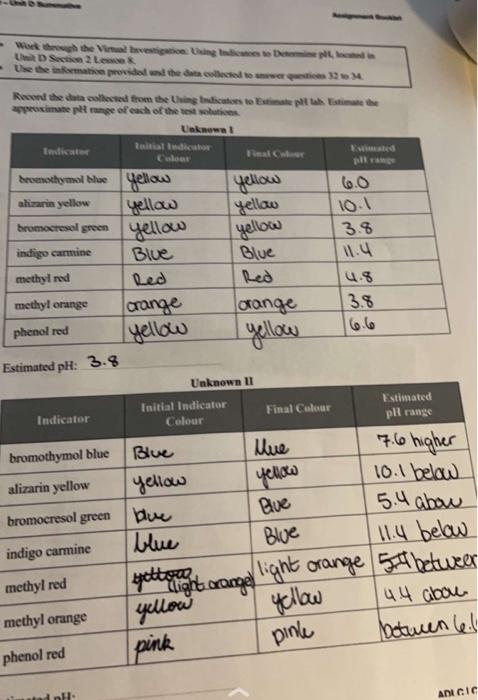 Unit D Summative
Assignment Booklet
Work through the Virtual Investigation: Using Indicators to Determine pH, located in
Unit D Section 2 Lesson 8.
Use the information provided and the data collected to answer questions 32 to 34.
Record the data collected from the Using Indicators to Estimate pH lab. Estimate the
approximate pH range of each of the test solutions.
Unknown I
Indicator Initial Indicator Colour Final Colour Estimated pH range
bromothymol blue yellow yellow 6.0
alizarin yellow yellow yellow 10.1
bromocresol green yellow yellow 3.8
indigo carmine Blue Blue 11.4
methyl red Red Red 4.8
methyl orange orange orange 3.8
phenol red yellow yellow 6.6
Estimated pH: 3.8
Unknown II
Indicator Initial Indicator Colour Final Colour Estimated pH range
bromothymol blue Blue blue 7.6 higher
alizarin yellow yellow yellow 10.1 below
bromocresol green blue Blue 5.4 above
indigo carmine blue Blue 11.4 below
methyl red (light orange) light orange between
methyl orange yellow yellow 4.4 above
phenol red pink pink between 6.6
pH: